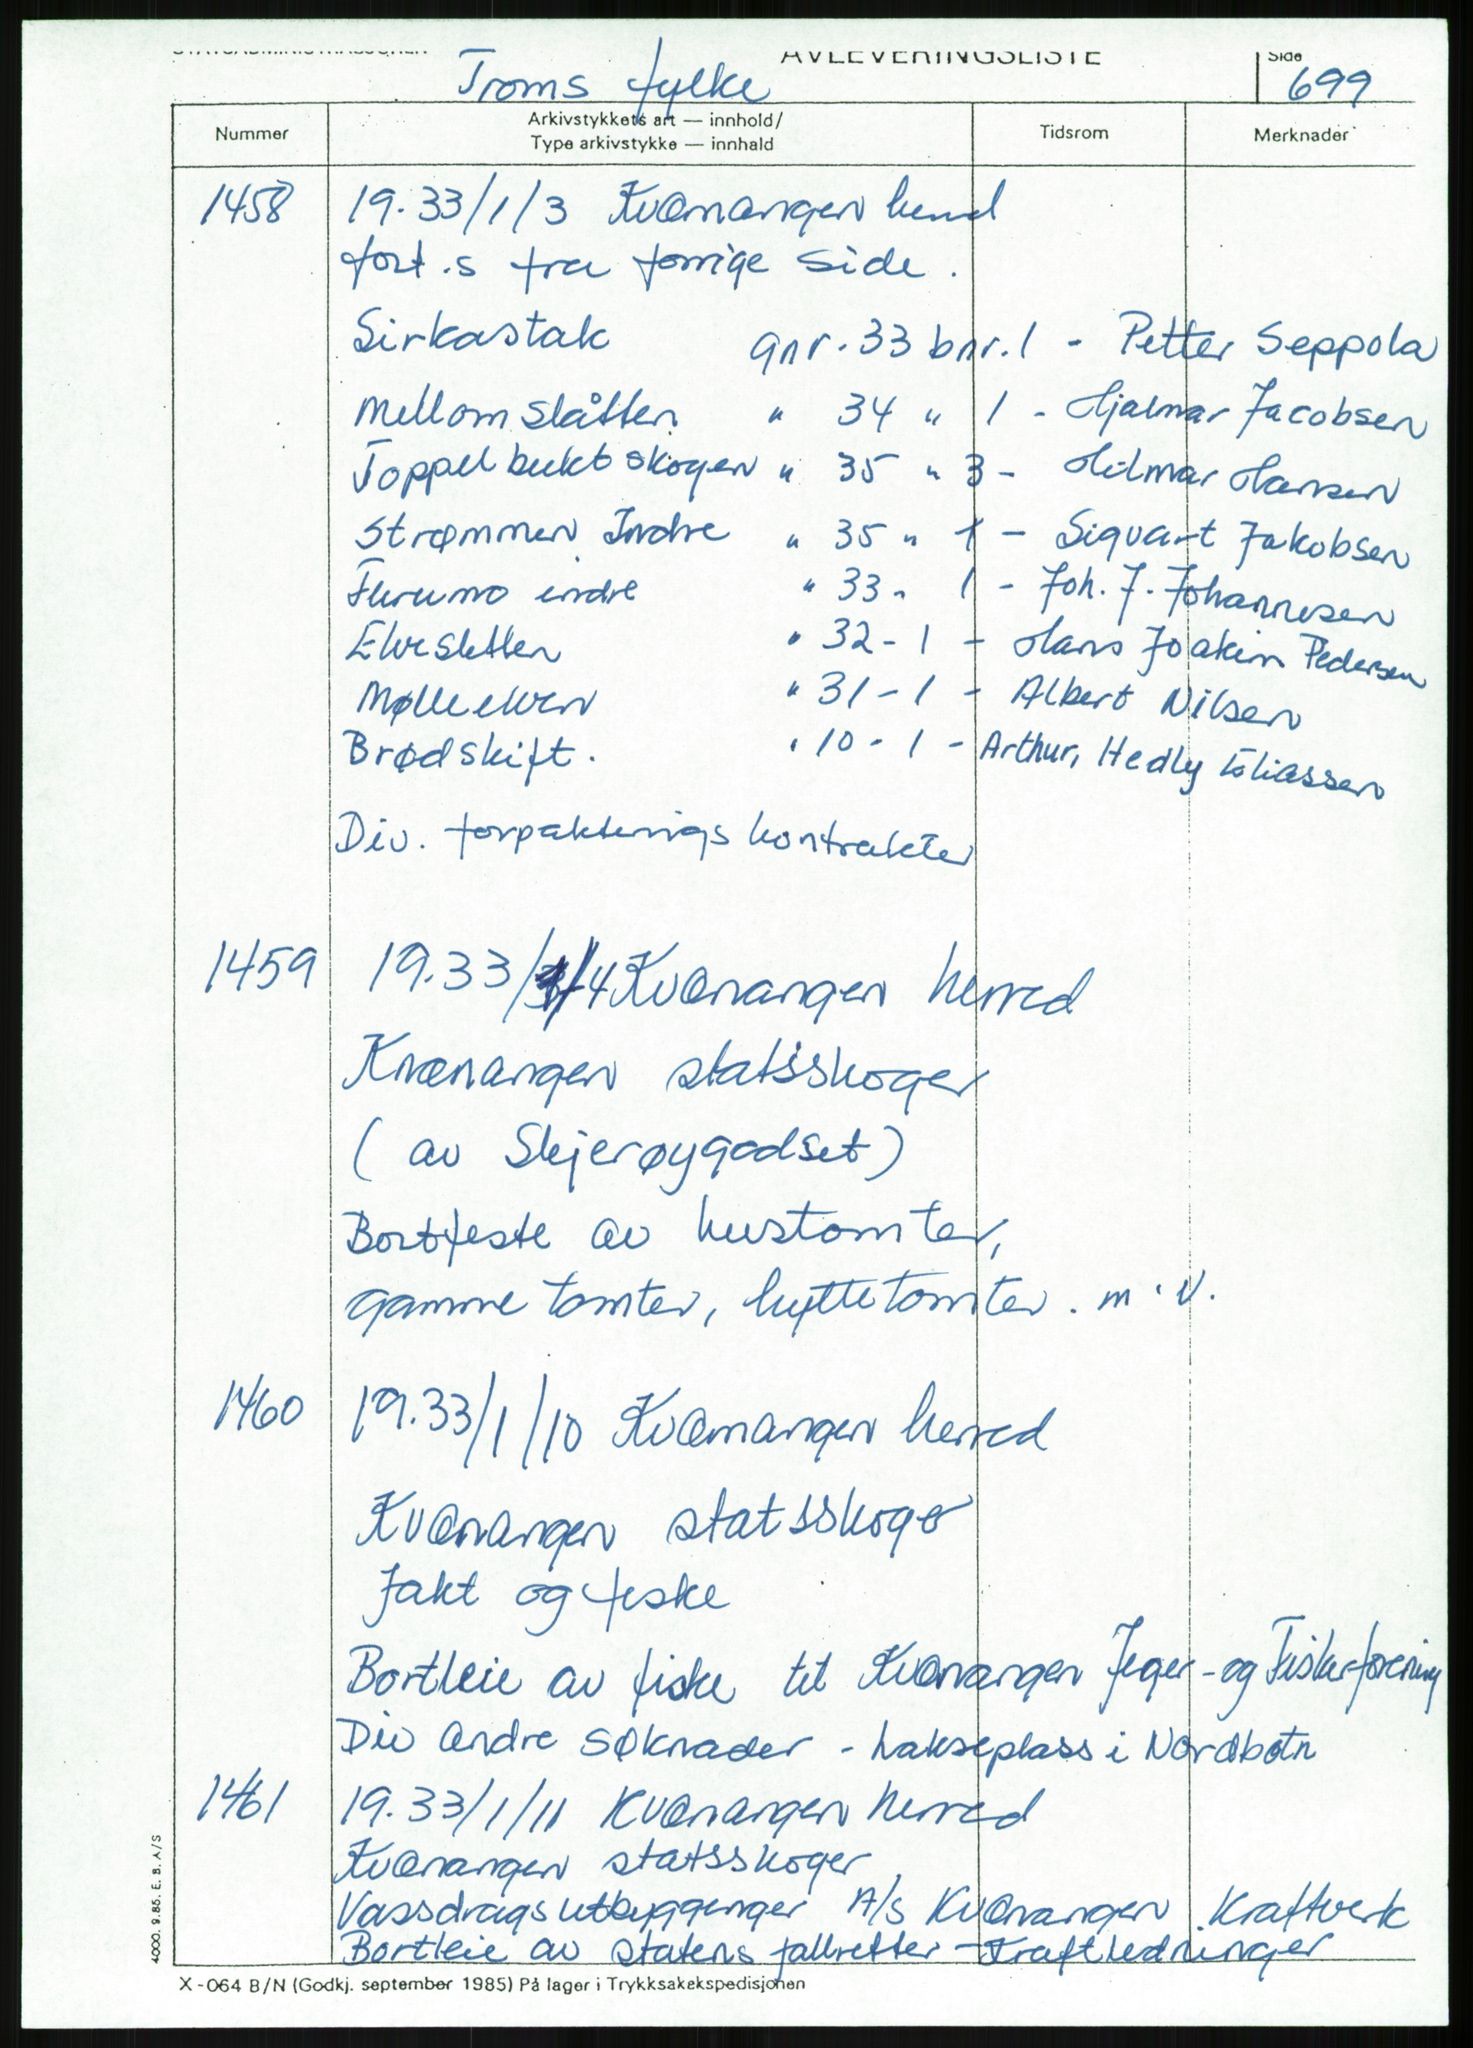 AVLEVERINGSLISTE
Side
Troms fylke
699
Nummer
Arkivstykkets art — innhold/
Type arkivstykke — innhald
Tidsrom
Merknader
1458 19.33/1/3 Kvænangen herred
fort.s fra forrige side.
Sirkastak gnr. 33 bnr. 1 - Petter Seppola
Mellomslåtten " 34 " 1 - Hjalmar Jacobsen
Toppelbuktskogen " 35 " 3 - Hilmar Hansen
Strømmen Indre " 35 " 1 - Sigvart Jakobsen
Furumo indre " 33 " 1 - Joh. J. Johannesen
Elvesletten " 32 - 1 - Hans Joakim Pedersen
Mølleelven " 31 - 1 - Albert Nilsen
Brødskift. " 10 - 1 - Arthur, Hedly Eliassen
Div. forpaktningskontrakter
1459 19.33/1/4 Kvænangen herred
Kvænangen statsskoger
( av Skjerøygodset)
Bortfeste av hustomter,
gammetomter, hyttetomter. m.v.
1460 19.33/1/10 Kvænangen herred
Kvænangen statsskoger
Jakt og fiske
Bortleie av fiske til Kvænangen Jeger- og Fiskerforening
Div andre søknader - Lakseplass i Nordbotn
1461 19.33/1/11 Kvænangen herred
Kvænangen statsskoger
Vassdragsutbygginger A/S Kvænangen Kraftverk
Bortleie av statens fallretter - Kraftledninger
4000. 9.85. E. B. A/S
X-064 B/N (Godkj. september 1985) På lager i Trykksakekspedisjonen